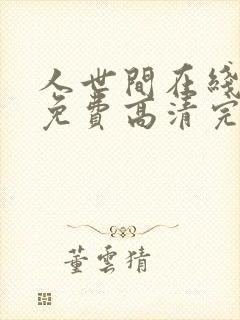 人世間在綫
免費高清完
董雲猜